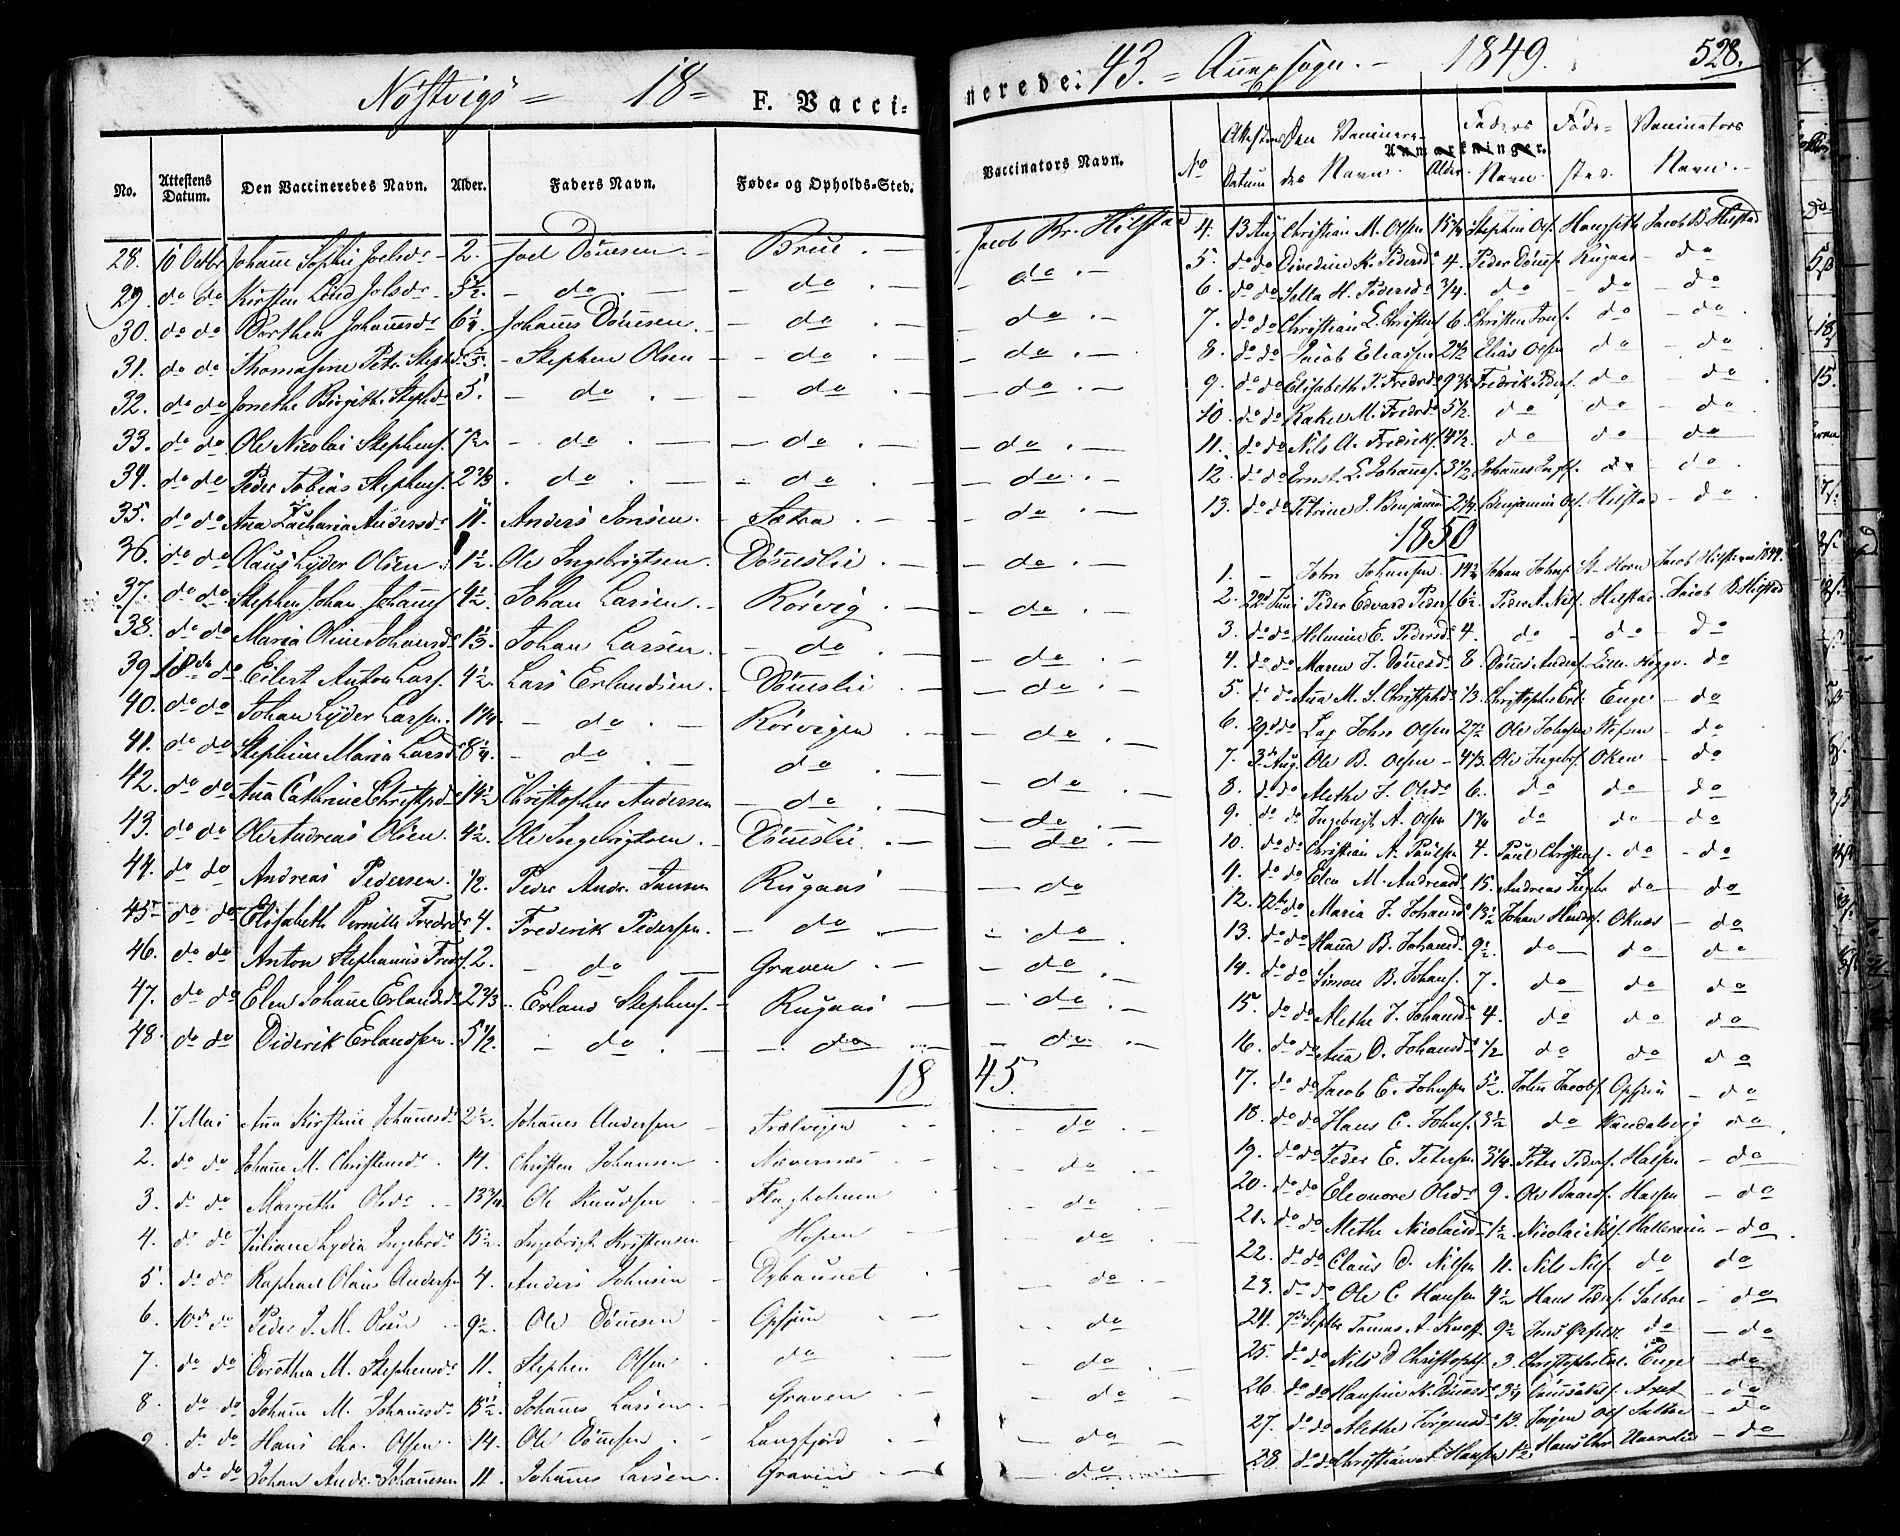 Nøstvigs = 18 = F. Vacci- nerede: 43. = Annexsogn. - 1849. 528.
No. Attestens Datum. Den Vaccineredes Navn. Alder. Faders Navn. Føde- og Opholds-Sted. Vaccinators Navn.
28. 10 Octbr Johanne Sophie Joelsdr 2. Joel Dönesen Brue Jacob Br. Hilstad
29. do do Kirsten Lind Jolsdr 5 1/2. do do do
30. do do Dorthea Johannesdr 6 1/4. Johannes Dönesen do do
31. do do Thomasine Petr. Stephd. Stephen Olsen do do
32. do do Jonethe Birgithe Stephdr 5. do do do
33. do do Ole Nicolai Stephens. 7 1/2. do do do
34. do do Peder Tobias Stephens. 2 2/3 do do do
35. do do Ana Zacharia Andersdr 11. Anders Jonsen Sætra do
36. do do Olaus Lyder Olsen 1 1/2. Ole Ingebrigtsen Dönneslie do
37. do do Stephen Johan Johans. 4 1/2. Johan Larsen Rörvig do
38. do do Maria Oline Johansdr 1 1/3. Johan Larsen do do
39. 18de do Eilert Anton Lars. 4 1/2. Lars Erlandsen Dönneslie do
40. do do Johan Lyder Larsen 1 1/4 do Rörvigen do
41. do do Stephine Maria Larsd. 8 1/4. do do do
42. do do Ana Cathrine Christpd. 14 1/2 Christopher Andersen do do
43. do do Ole Andreas Olsen 4 1/2. Ole Ingebrigtsen Dönneslie do
44. do do Andreas Pedersen 1/2. Peder Andr. Jansen Rugaas do
45. do do Elisabeth Pernille Fredrdr 4. Frederik Pedersen do do
46. do do Anton Stephanus Freds. 2. do Graven do
47. do do Elen Johanne Erlandsdr 2 2/3 Erland Stephens. Rugaas do
48. do do Diderik Erlandsen 5 1/2. do do do
18 45.
1. 7 Mai Ana Kirstine Johannesdr 2 1/2. Johannes Andersen Trælvigen do
2. do do Johanne M. Christensdr 14. Christen Johansen Nævernæs do
3. do do Margrethe Olsdr 13 3/4. Ole Knudsen Flagholmen do
4. do do Juliane Lydia Ingebrdr 13 1/2. Ingebrigt Kristensen Hopen do
5. do do Raphael Olaus Andersen 4. Anders Johnsen Dybaunet do
6. 10de do Peder J. M. Olsen 9 1/2. Ole Dönesen Opsjøn do
7. do do Dorothea M. Stephensdr 11. Stephen Olsen do do
8. do do Johanne M. Johannesdr 13 1/2. Johannes Larsen Graven do
9. do do Hans Chr. Olsen 14. Ole Dönesen Langfjord do
do do Johan Andr. Johannesen 11. Johannes Larsen Graven do
No Attestens Datum Den Vaccinere- des Navn. Alder Faders Navn. Føde- sted. Vaccinators Navn.
Anmærkninger.
4. 13 Aug Christian M. Olsen Stephen Ols. Jacob B. Hilstad
5. do do K. Pedersdr 4. Peder Dönes. Rugaas do
6. do do H. Pedersdr 3/4. do do do
7. do do Christian L. Christens 6. Christen Jons. do do
8. do do Jacob Eliassen 2 1/2 Elias Olsen do do
9. do do Elisabeth P. Fredrdr Fredrik Peders. do do
10. do do Rakel M. Fredrdr 5 1/2. do do do
11. do do Nils A. Fredriks. 4 1/2. do do do
12. do do Ernst L. Johans. 3 1/2 Johannes do do
13. do do Petrine J. Benjamind 2 1/4 Benjamin Ols. Hilstad do
1850
1. - John Johansen 14 3/4 Johan Johns. Horn Jacob Hilstad
2. 22d Juni Peder Edvard Peders. 6 1/2. Peder A. Nils. Hilstad Jacob B. Hilstad
3. do do Helmine E. Pedersdr 4. do do do
4. do do Maren J. Dönesdr 8. Dönes Anders. do
5. do do Ana M. S. Christphdr 1/3. Christopher Erl. Enge do
6. 29 do John Olsen 2 1/2 Ole Johnsen Vefsen do
7. 3de Aug. Ole B. Olsen 4 2/3 Ole Ingebr. Oken do
8. do do Methe J. Olsdr 6. do do do
9. do do Ingebrigt A. Olsen 1 1/4 do do do
10. do do Christian A. Paulsen 4. Paul Christens. do do
11. do do Elen M. Andreasd 15. Andreas Ingebr do do
12. 12te do Maria J. Johansd. 13 1/2 Johan Hendr. Oknes do
13. do do Hana B. Johansd. 9 1/2. do do do
14. do do Simon B. Johans. 7. do do do
15. do do Methe J. Johansd. 4. do do do
16. do do Ana D. Johansdr 1/2 do do do
17. do do Jacob E. Johnsen 5 1/2. John Jacobs. Opsjøn do
18. do do Hans C. Johns. 3 1/2 do Vandalsvig do
19. do do Peder E. Petersen 3 1/4. Peter Peders. Halsen do
20. do do Eleonore Olsdr 9. Ole Baards. Halsen do
21. do do Methe Nicolaisd. 1 1/2. Nicolai Nils. do
22. do do Claus D. Nilsen 11. Nils Nils. do do
23. do do Ole C Hansen 9 1/2 Hans Peders. Salboe do
24. 7de Septbr Tomas A. 9 1/2 do do
25. do do Nils D Christophs. 3. Christopher Erl. Enge do
26. do do Hansine K. do
27. do do Methe Jörgensdr 12. Jörgen Ols. Salboe do
28 do do Hans Chr. do